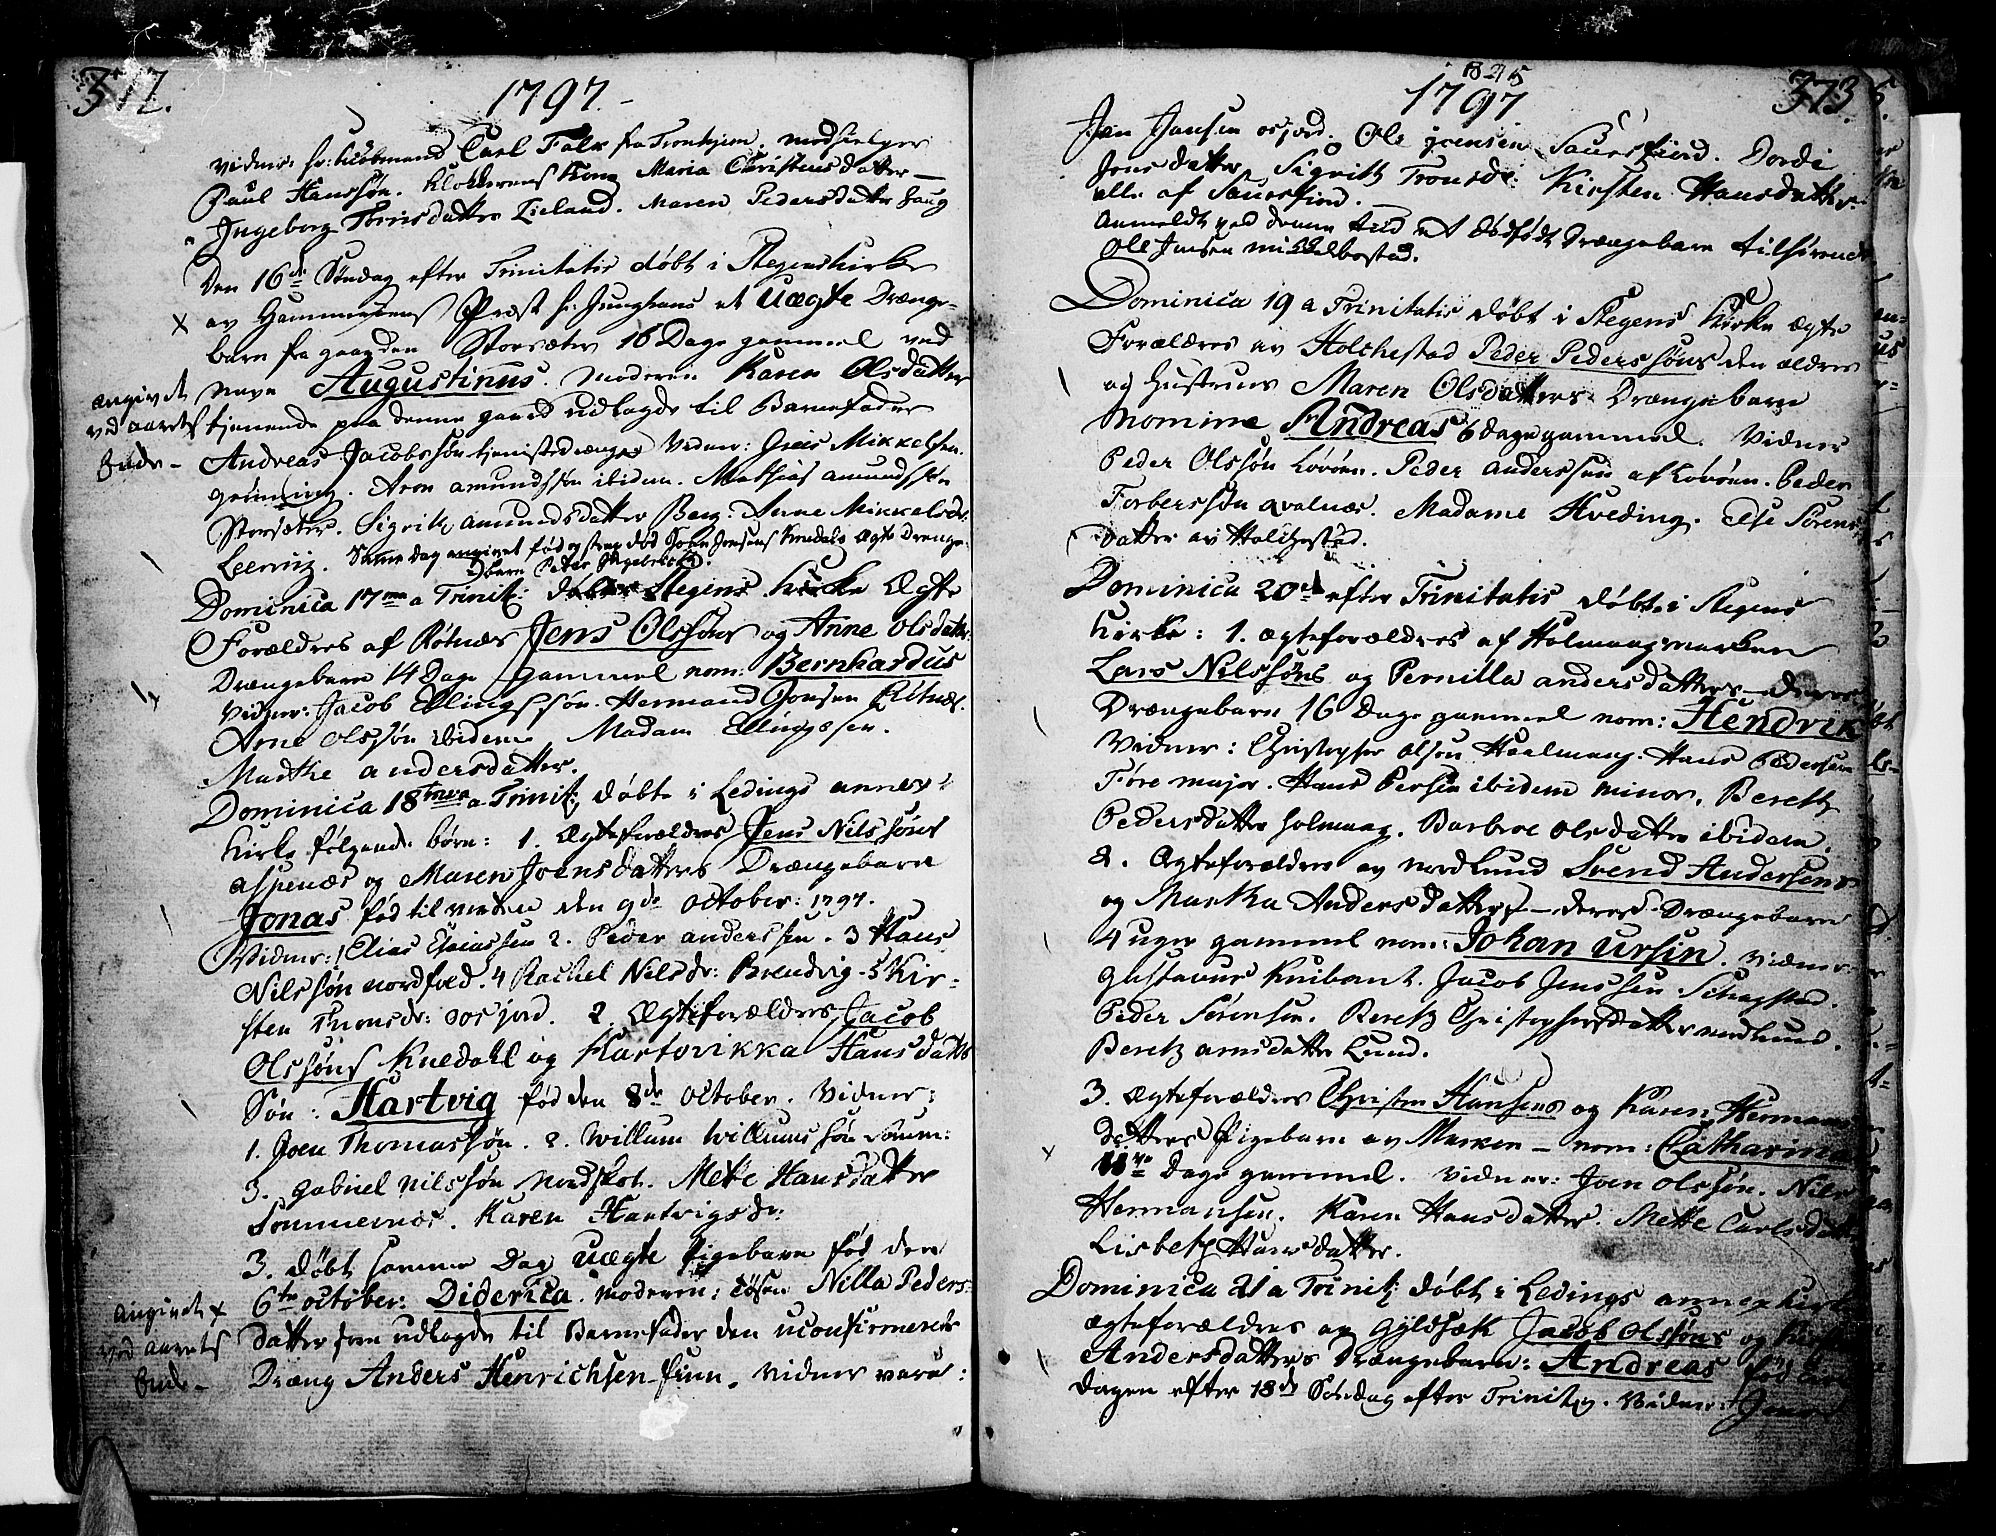 372.
1797.
Vidner: hr: Kiøbmand Carl Falk fra Tronhjem. medhielper
Paul Hanssøn. Klokkerens Kone Maria Christensdatter
Ingeborg Tørrisdatter Lieland. Maren Pedersdatter Haug
Den 16de Søndag efter Trinitatis døbt i Stegens Kirke
av Hammerøens Præst hr: Junghans et Uægte Drænge-
barn fra gaarden Storsæter 16 Dage gammel ved
Navn Augustinus. Moderen Karen Olsdatter
angivet
ved aarets
Ende
tienende paa denne gaard udlagde til Barnefader
Andreas Jacobssøn tienistedrænge. Vidner: Mikkelsen
grønning. Aron Amundssøn ibidem. Mathias Amundssøn
Storsæter. Sigrith Amundsdatter Berg. Anne Mikkelsdr
Leervig. Samme dag angivet fød og strax død John Jonsens Ægte Drenge-
barn Peter
Dominica 17ma a Trinit: døbt i Stegens Kirke Ægte
Forældres af Røtnæs Jens Olssøns og Anne Olsdatr:
Drængebarn 14 Dage gammel nom: Bernhardus
Vidner: Jacob Ellingssøn. Hermand Jonsen Røtnæs.
Arne Olssøn ibidem Madam Ellingsen.
Marthe Andersdatter.
Dominica 18tiva a Trinit: døbte i Ledings annex
Kirke følgende børn: 1. Ægteforældres Jens Nilssøns
Aspenæs og Maren Joensdatters Drængebarn
Jonas fød til verden den 9de October: 1797.
Vidner: 1 Elias Eliassen 2. Peder Anderssen. 3 Hans
Nilssøn Nordfold. 4 Rachel Nilsdr: Brendvig. 5 Kir-
sten Thomsdr: Osfjord. 2 Ægteforældres Jacob
Olssøns Knedahl og Hartvikka Hansdattr
Søn: Hartvig fød den 8de October. Vidner:
1. Joen Thomassøn. 2. Willum Willumssøn Somm:
3. Gabriel Nilssøn Nordskot. Mette Hansdatter
Sommernæs. Karen Hartvigsdr:
3. døbt samme Dag Uægte Pigebarn fød den
6te October: Diderica. Moderen: tøsen Nilla Peders-
Angivet
ved aarets
Ende
datter som udlagde til Barnefader den uconfirmerede
Dræng Anders Henrichsen. Vidner vare:
1825
1797
373.
Jan Jansen Osfjord. Ole Joensen Sauesfiord. Dordi
Jonsdatter, Sigrith Tronsdr: Kirsten Hansdatter
alle af Sauesfiord.
Anmeldt ved denne tiid et dødfødt Drængebarn tilhørende
Ole Jensen Mikkelbostad.
Dominica 19 a Trinitatis døbt i Stegens Kirke Ægte
Forældres av Holchestad Peder Pederssøns den ældres
og Hustrues Maren Olsdatters Drængebarn
nomine Andreas 6 dage gammel. Vidner
Peder Olssøn Lovøen. Peder Anderssøn af Lovøen. Peder
Torberssøn Qvalnæs. Madame Hveding. Else Sørens
datter av Holchestad.
Dominica 20de efter Trinitatis døbte i Stegens
Kirke: 1. Ægteforældres af Holmaagmarken
Lars Nilssøns og Pernilla Andersdatters deres
Drængebarn 16 Dage gammel nom: Hendrik
Vidner: Christopher Olsen Haalmaag. Hans Pedersen
Føre major. Hans Persen ibidem minor. Bereth
Pedersdatter Holmaag. Barbroe Olsdatter ibidem.
2. Ægteforældres av Nordlund Svend Andersens
og Martha Andersdatters deres Drængebarn
4 uger gammel nom: Johan Ursin. Vidner:
Gustavus Kuibant. Jacob Jenssen Schagstad.
Peder Sørensen. Bereth Christophersdatter Nordlund.
Bereth Arnsdatter Lund.
3. Ægteforældres Christen Hansens og Karen Hermans
datters Pigebarn av Marken nom: Catharina
11te Dage gammel. Vidner: Joen Olssøn. Nils
Hermansen. Karen Hansdatter. Mette Carlsdatt
Lisbeth Hansdatter.
Dominica 21 a Trinit: døbt i Ledings annexkirke
Ægteforældres av Gyldsæth Jacob Olssøns og
Andersdatters Drængebarn: Andreas fød
dagen efter 18de Søndag efter Trinitatis. Vidner: